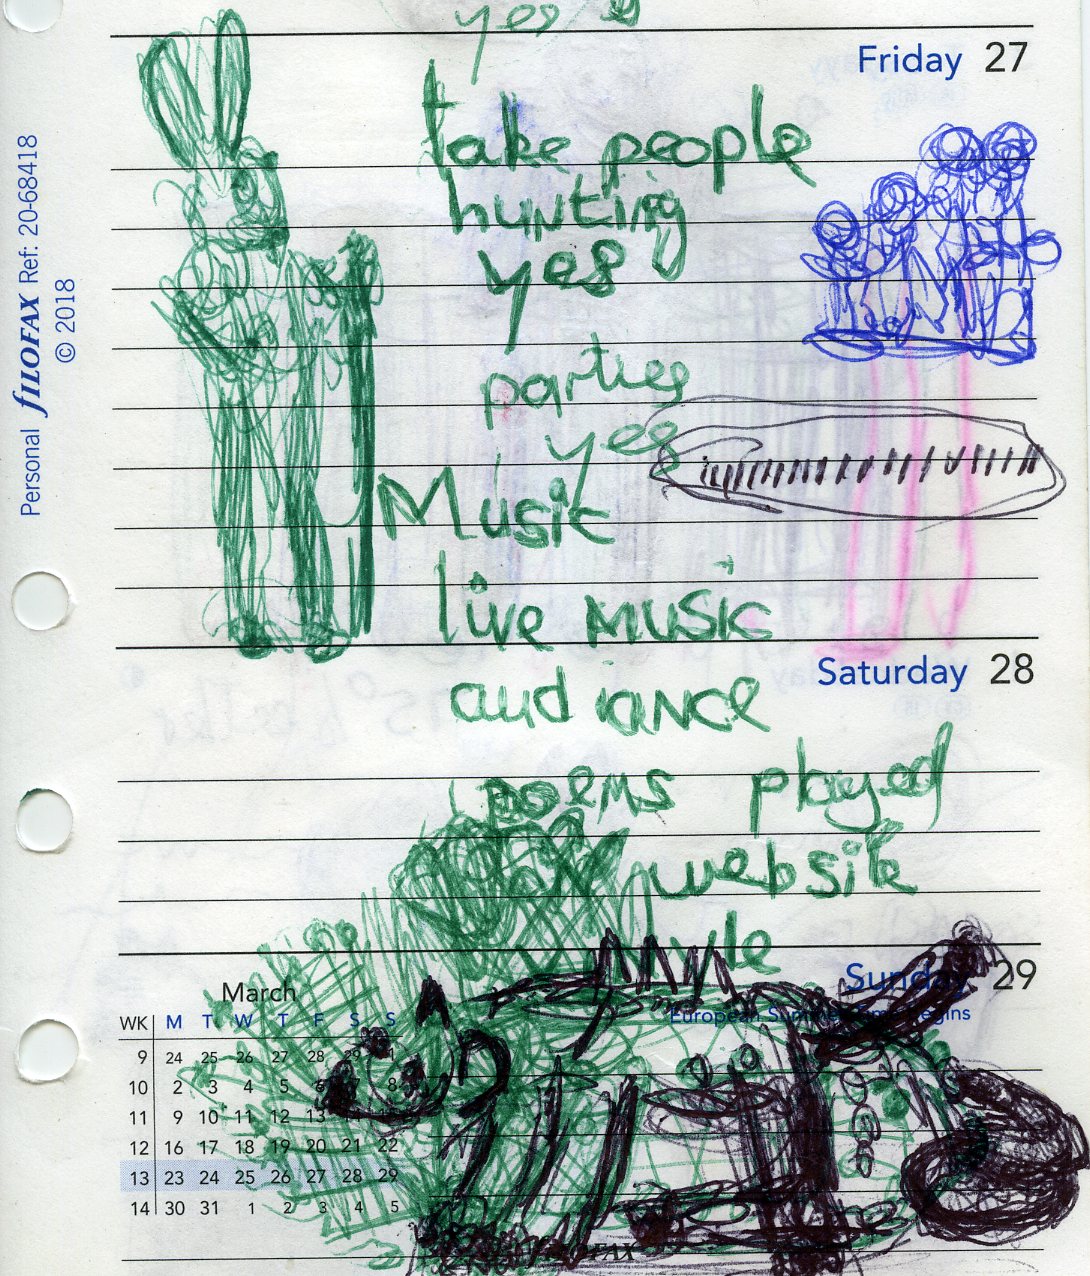 yes
Friday 27
take people
hunting
yes
parties
yes
Music
live Music
Saturday 28
audiance
poems played
website
Sunday 29
European Summer Time begins
March
WK M T W T F S S
9 24 25 26 27 28 29 1
10 2 3 4 5 6 7 8
11 9 10 11 12 13
12 16 17 18 19 20 21 22
13 23 24 25 26 27 28 29
14 30 31 1 2 3 4 5
FILOFAX
Personal FILOFAX Ref: 20-68418
© 2018